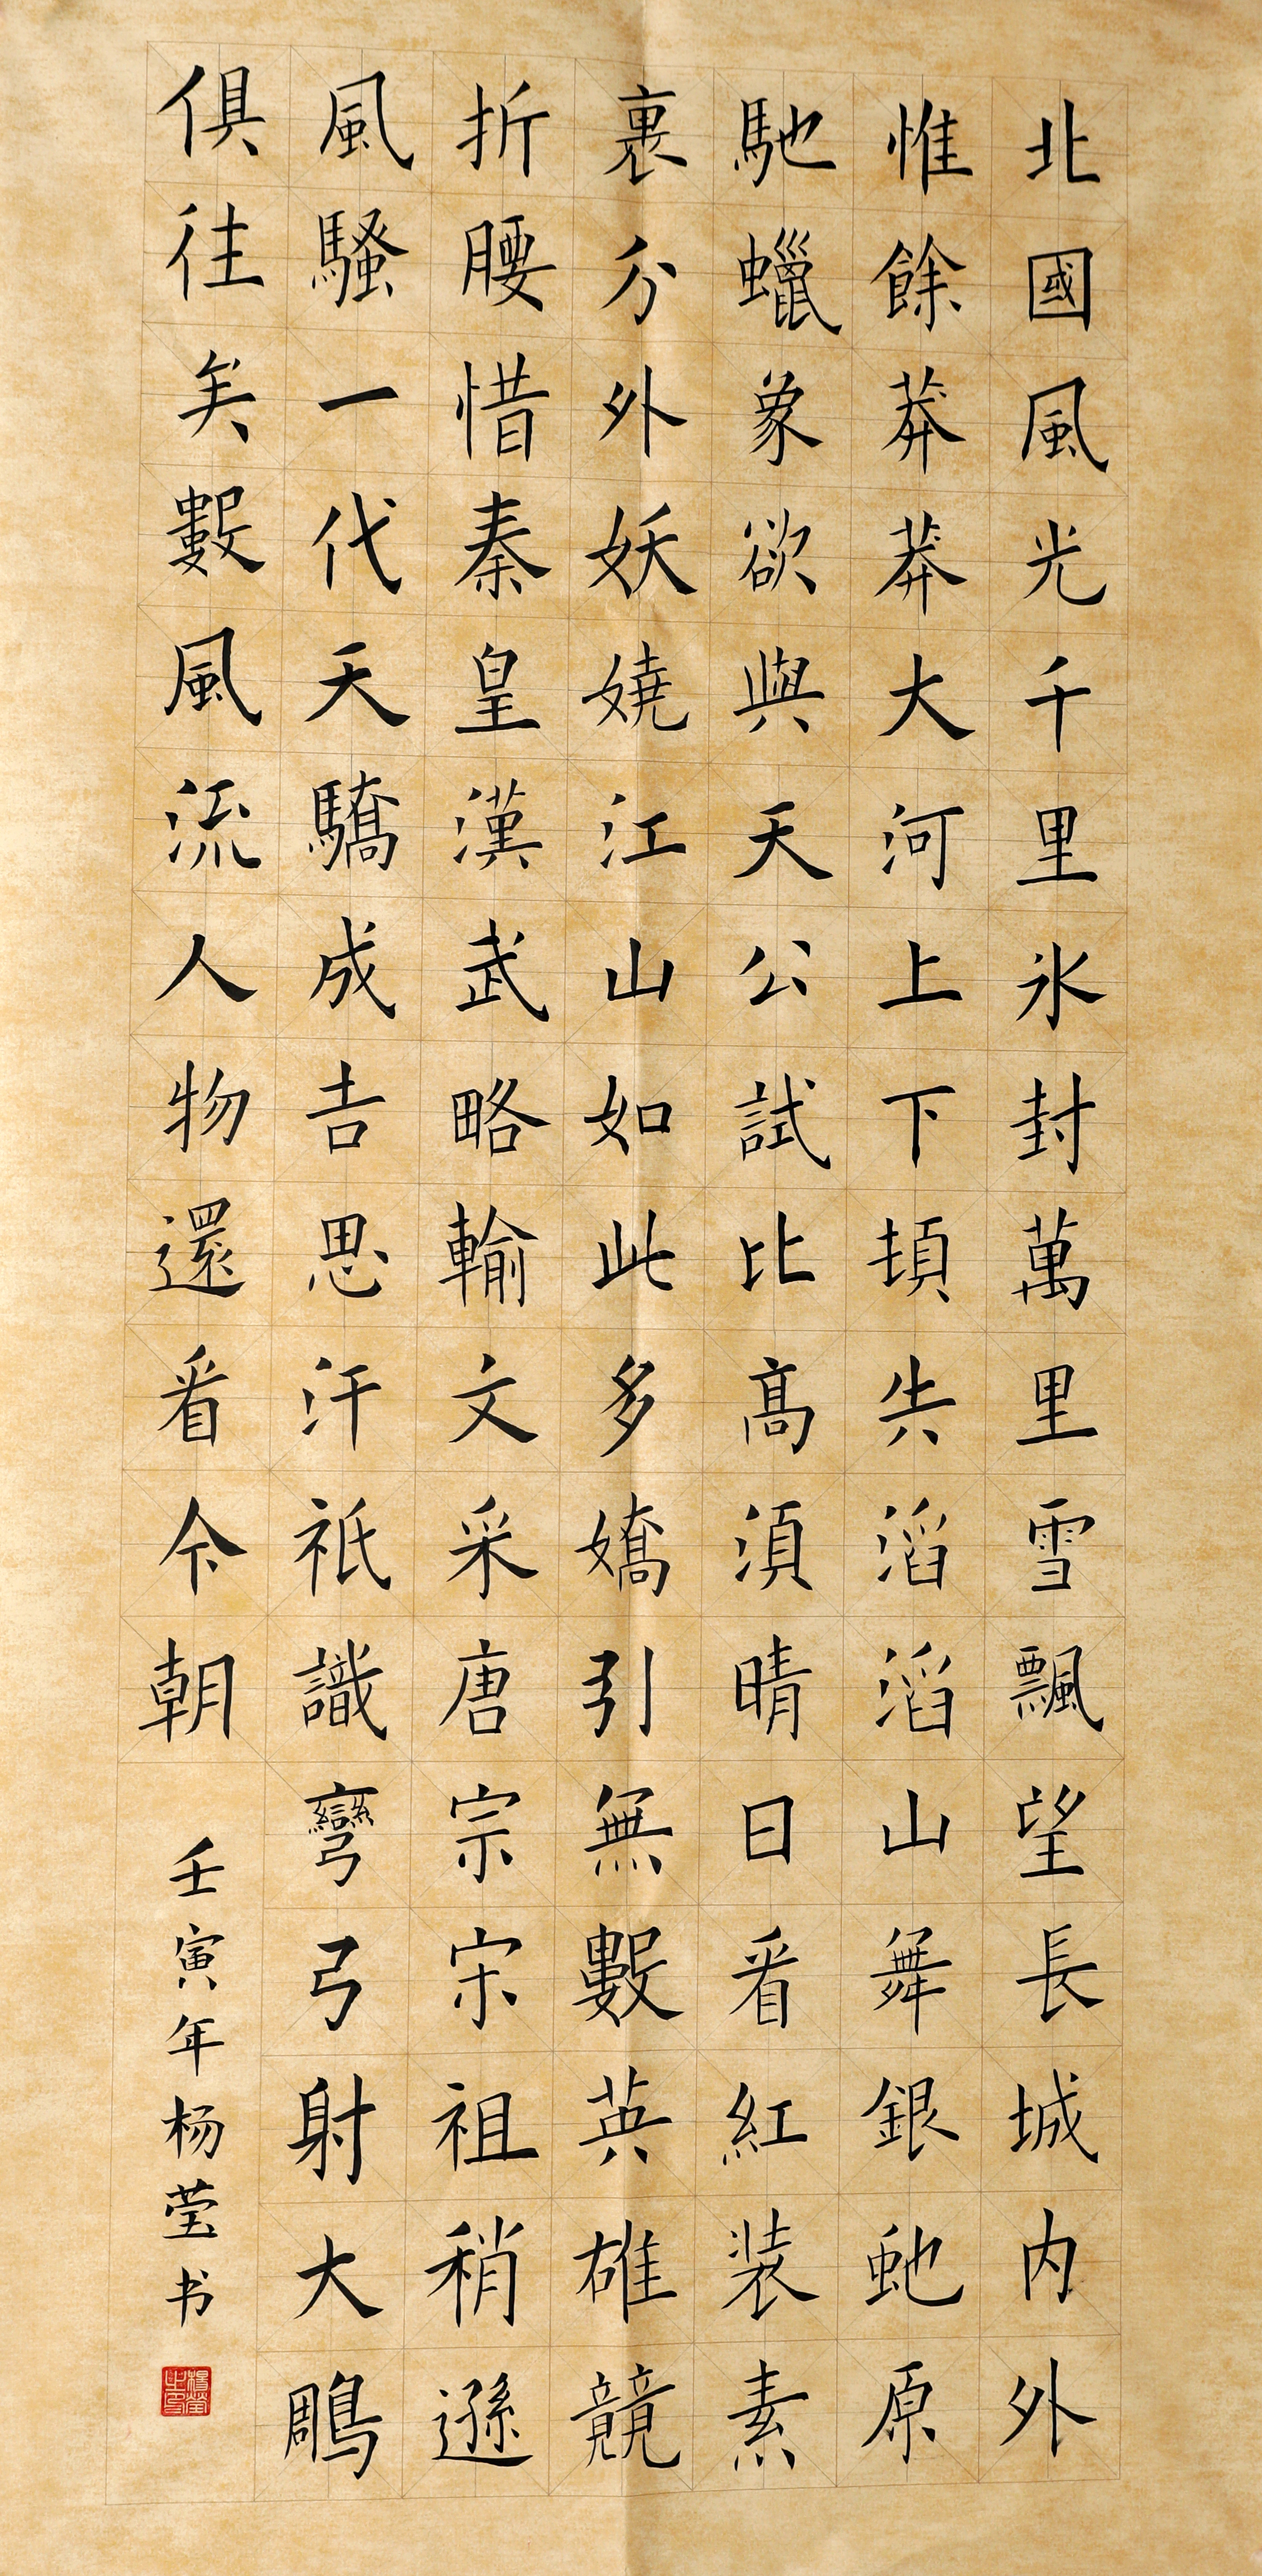 北國風光千里氷封萬里雪飄望長城内外
惟餘莽莽大河上下頓失滔滔山舞銀虵原
馳蠟象欲與天公試比高須晴日看紅装素
裹分外妖嬈江山如此多嬌引無數英雄競
折腰惜秦皇漢武略輸文采唐宗宋祖稍遜
風騷一代天驕成吉思汗祇識彎弓射大鵰
俱往矣數風流人物還看今朝
壬寅年杨莹书
楊瑩之印